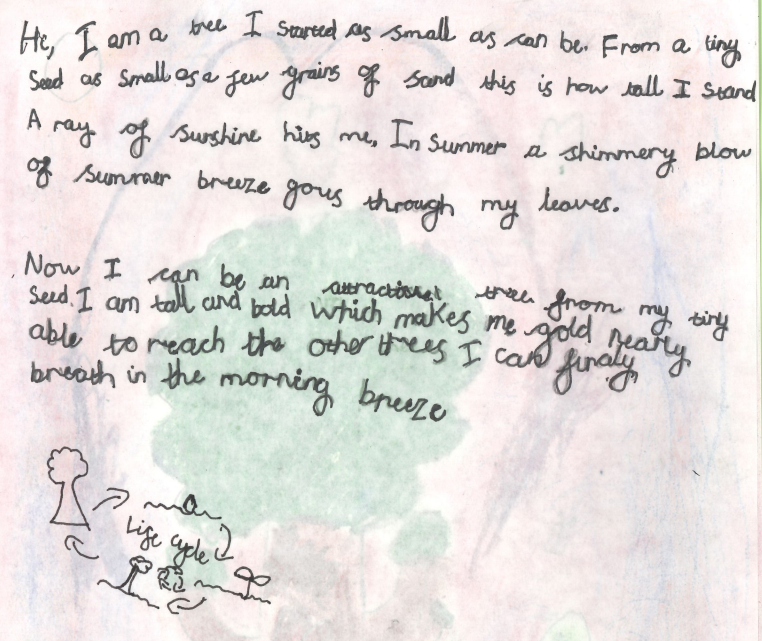 Hi, I am a tree I started as small as can be. From a tiny
Seed as small as a few grains of sand this is how tall I stand
A ray of sunshine hits me. In Summer a shimmery blow
of summer breeze gous through my leaves.
Now I can be an attractional tree from my tiny
Seed. I am tall and bold which makes me gold nearly
able to reach the other trees I can finaly
breath in the morning breeze
Life cycle